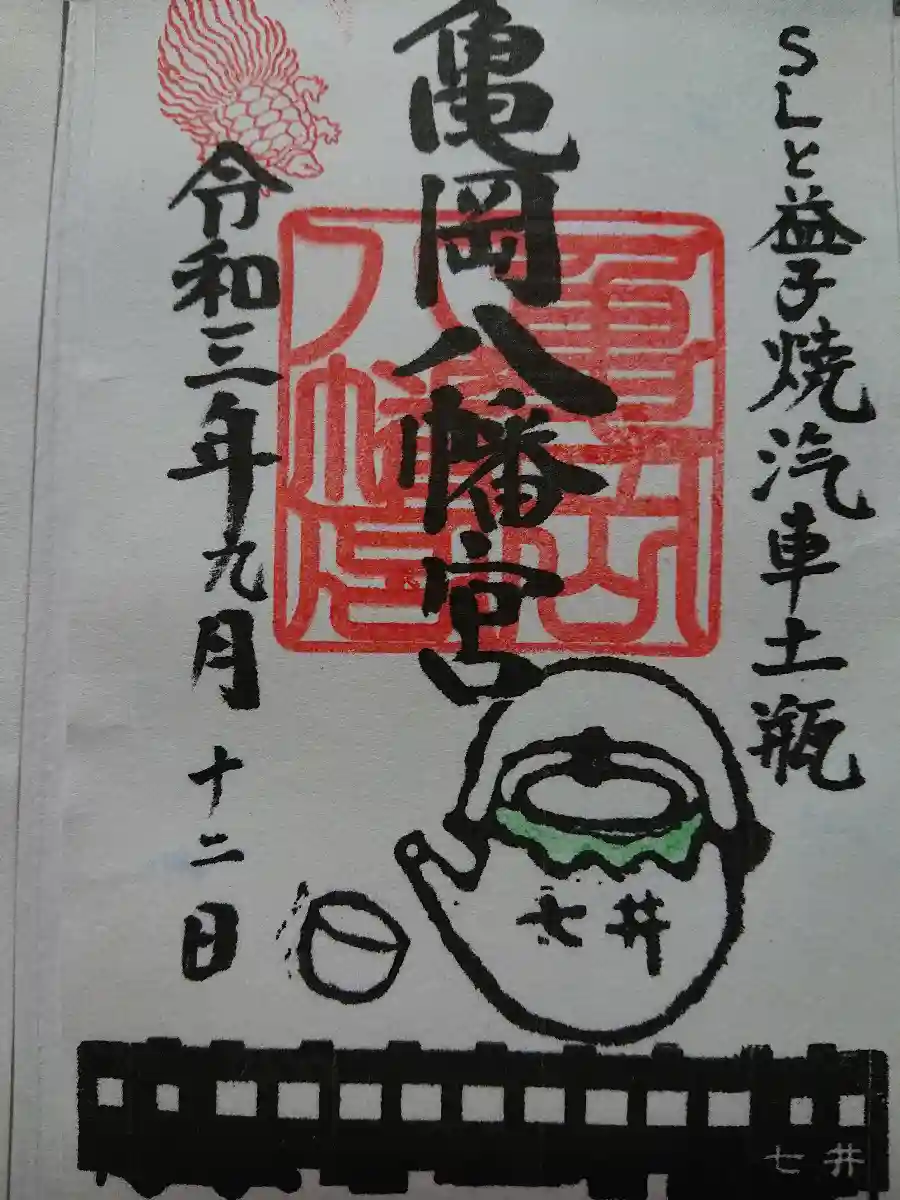 SLと益子焼汽車土瓶
亀岡八幡宮
令和三年九月十二日
亀岡八幡宮
七井
七井